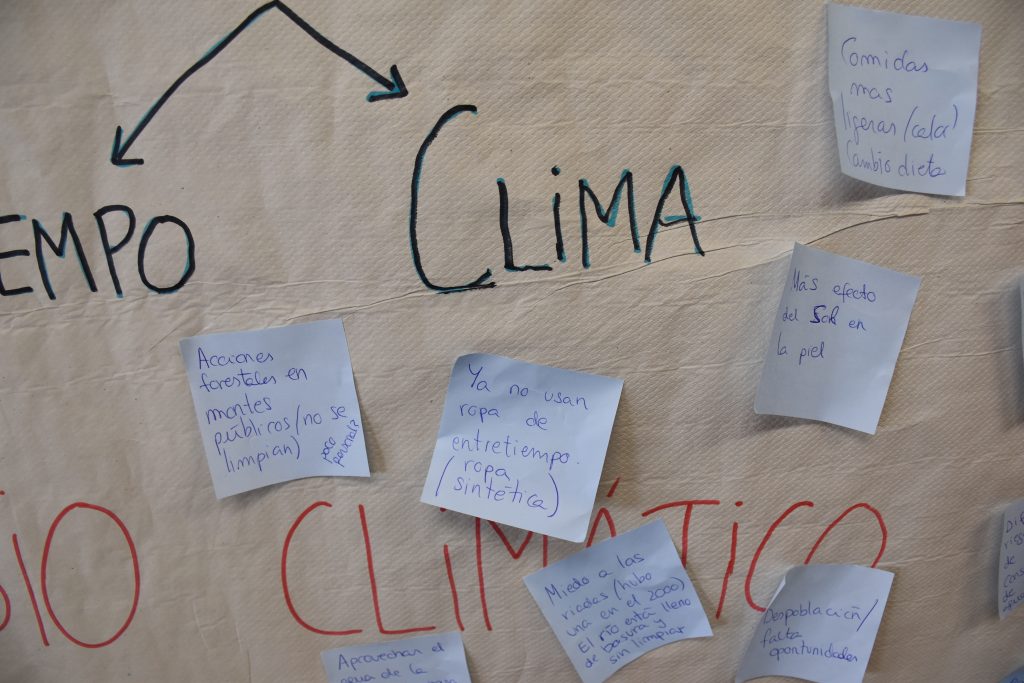 EMPO
CLiMA
Comidas
mas
ligeras (calor)
Cambio dieta
Más efecto
del Sol en
la piel
Acciones
forestales en
montes
públicos (no se
limpian)
poco
Ya no usan
ropa de
entretiempo.
(ropa
sintética)
BIO CLiMÁTiCO
Miedo a las
riadas (hubo
una en el 2000)
El río está lleno
de basura y
sin limpiar
Despoblación/
falta
oportunidades
Aprovechar el
agua de la
de
de